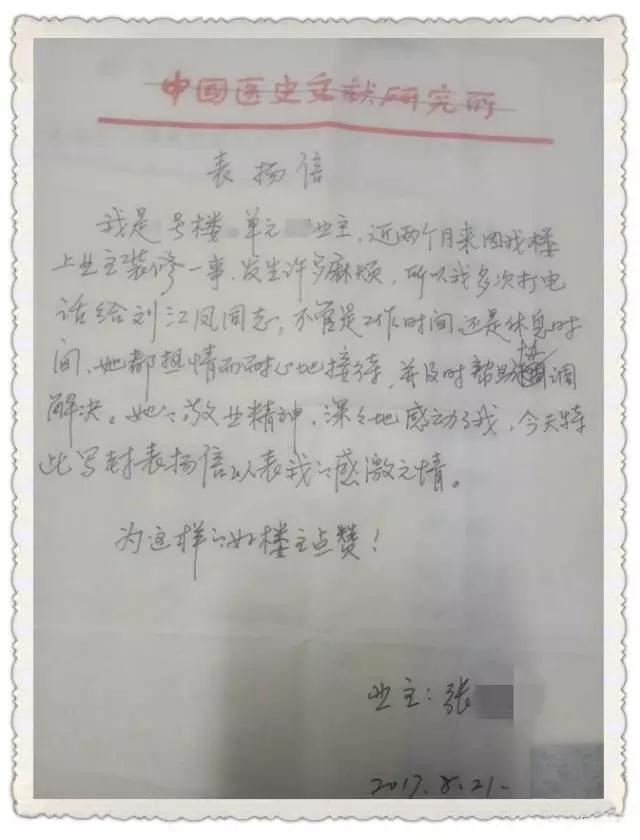 中国医史文献研究所
表扬信
我是 号楼 单元 业主，近两个月来因我楼
上业主装修一事，发生许多麻烦，所以我多次打电
话给刘江凤同志，不管是工作时间还是休息时
间，她都热情而耐心地接待，并及时帮助协调
解决。她的敬业精神，深深地感动了我，今天特
此写封表扬信以表我的感激之情。
为这样的好楼主点赞！
业主：张
2017.8.21.